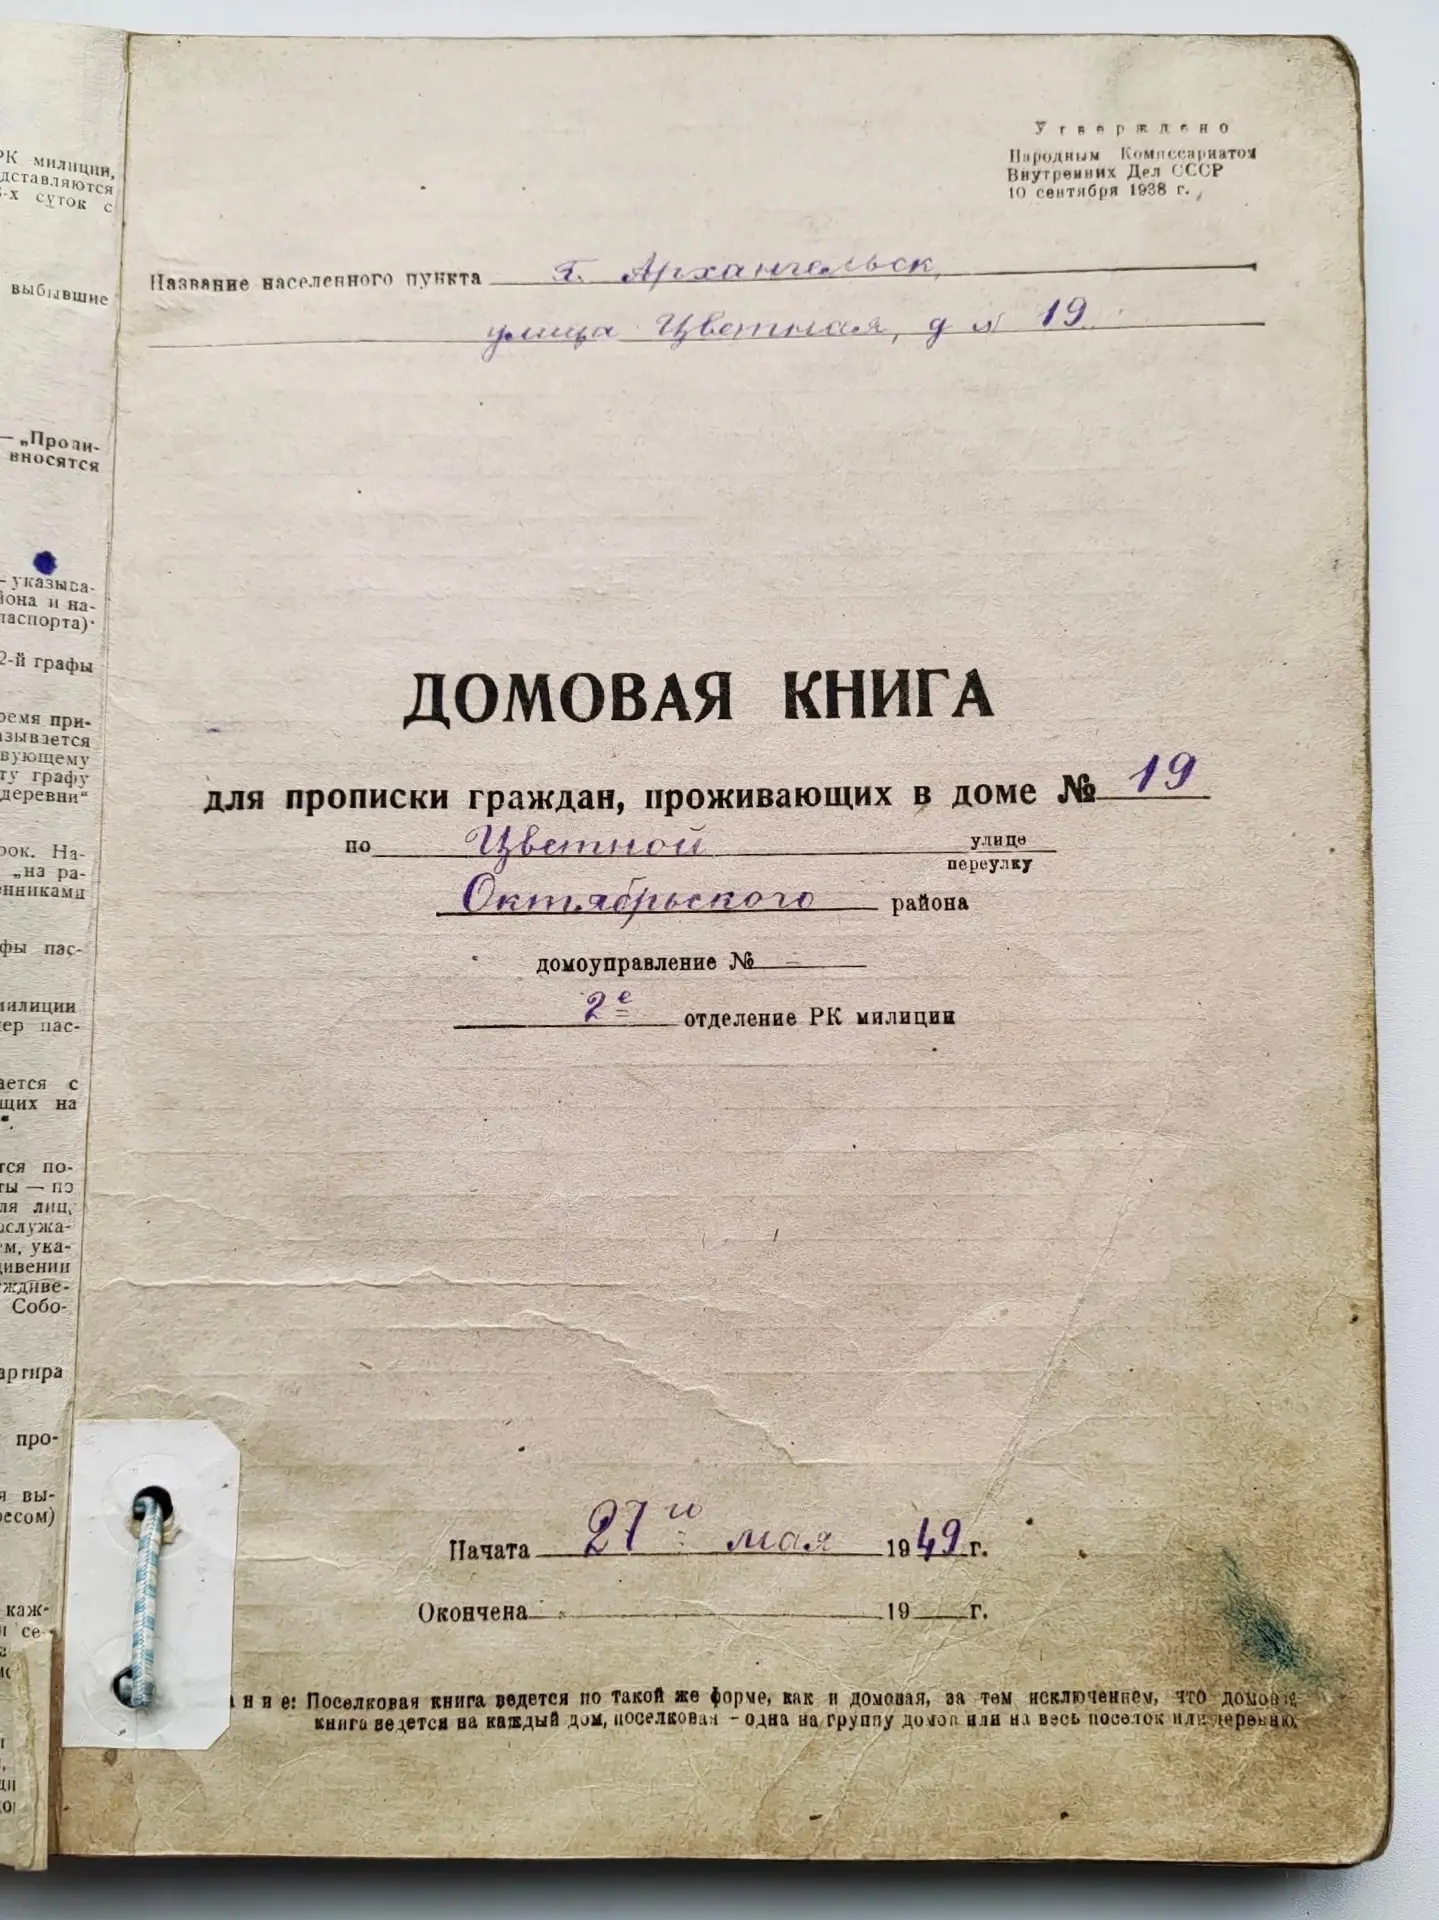 РК милиции,
дставляются
3-х суток с
выбывшие
— „Пропи-
вносятся
— указыва-
йона и на-
паспорта)
2-й графы
ремя при-
азывается
вующему
ту графу
деревни“
рок. На-
„на ра-
енниками
фы пас-
милиции
ер пас-
ается с
щих на
тся по-
ты — по
ля лиц,
ослужа-
м, ука-
дивении
ждиве-
Собо-
артира
про-
я вы-
ресом)
каж-
и се-
Утверждено
Народным Комиссариатом
Внутренних Дел СССР
10 сентября 1938 г.
Название населенного пункта г. Архангельск,
улица Цветная, д № 19
ДОМОВАЯ КНИГА
для прописки граждан, проживающих в доме № 19
по Цветной улице
переулку
Октябрьского района
домоуправление № –
2е отделение РК милиции
Начата 27го мая 1949 г.
Окончена 19 г.
ание: Поселковая книга ведется по такой же форме, как и домовая, за тем исключением, что домовая
книга ведется на каждый дом, поселковая – одна на группу домов или на весь поселок или деревню.